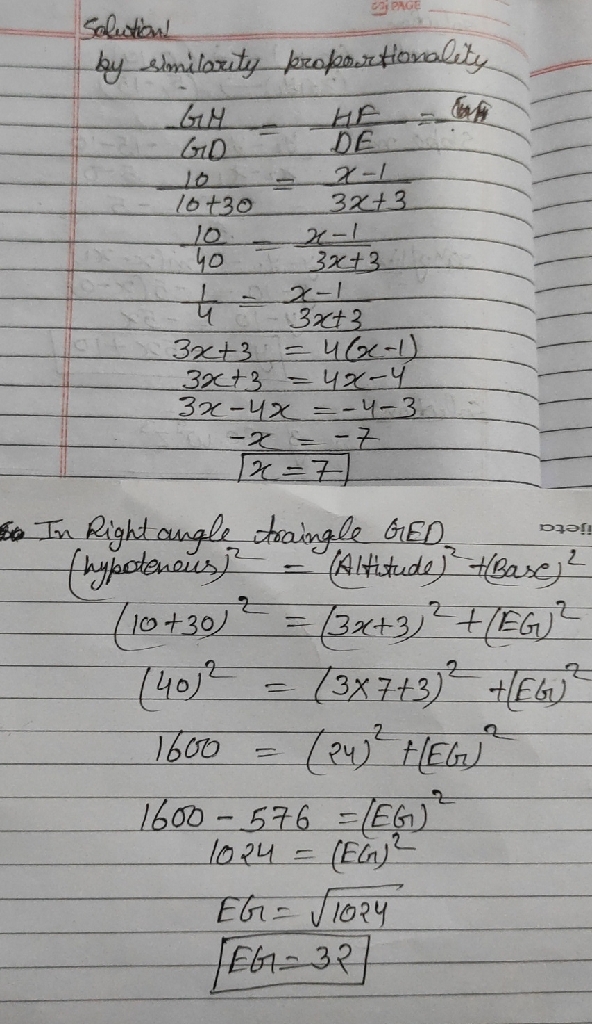 PAGE
Solution!
by similarity proportionality
GH/GD = HF/DE =
10/10+30 = x-1/3x+3
10/40 = x-1/3x+3
1/4 = x-1/3x+3
3x+3 = 4(x-1)
3x+3 = 4x-4
3x-4x = -4-3
-x = -7
x=7
In Right angle traingle GED
(hypotenous)² = (Altitude)² + (Base)²
(10+30)² = (3x+3)² + (EG)²
(40)² = (3×7+3)² + (EG)²
1600 = (24)² + (EG)²
1600 - 576 = (EG)²
1024 = (EG)²
EG = √1024
EG = 32